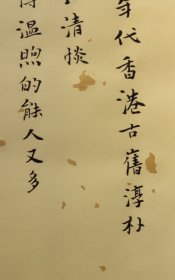 年代香港古舊淳朴
清淡
溫煦的能人又多